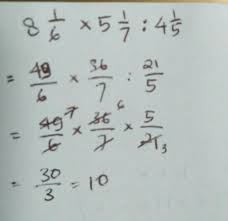 8 1/6 × 5 1/7 : 4 1/5
= 49/6 × 36/7 : 21/5
= 49/6 7 × 36/7 6 × 5/21 3
= 30/3 = 10